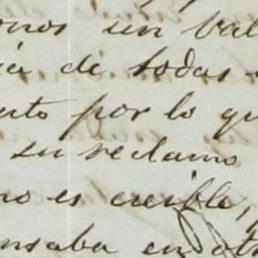 onos un bal
ia de todas
uto por lo qu
su reclamo
no es creible,
ensaba en ot